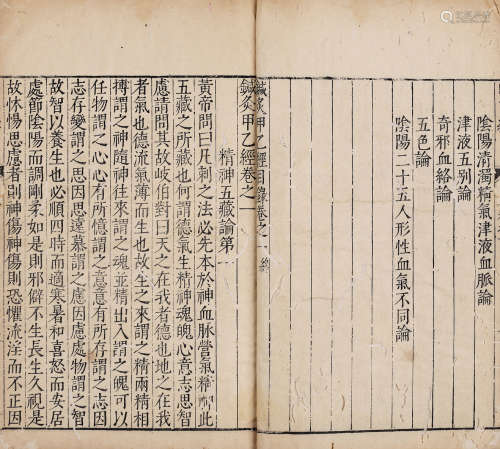 陰陽清濁精氣津液血脈論
津液五別論
奇邪血絡論
五色論
陰陽二十五人形性血氣不同論
鍼灸甲乙經目錄卷之一終
鍼灸甲乙經卷之一
精神五藏論第一
黃帝問曰凡刺之法必先本於神血脈營氣精神此
五藏之所藏也何謂德氣生精神魂魄心意志思智
慮請問其故岐伯對曰天之在我者德也地之在我
者氣也德流氣薄而生也故生之來謂之精兩精相
搏謂之神隨神往來謂之魂並精出入謂之魄可以
任物謂之心心有所憶謂之意意有所存謂之志因
志存變謂之思因思遠慕謂之慮因慮處物謂之智
故智以養生也必順四時而適寒暑和喜怒而安居
處節陰陽而調剛柔如是則邪僻不生長生久視是
故怵惕思慮者則神傷神傷則恐懼流淫而不正因